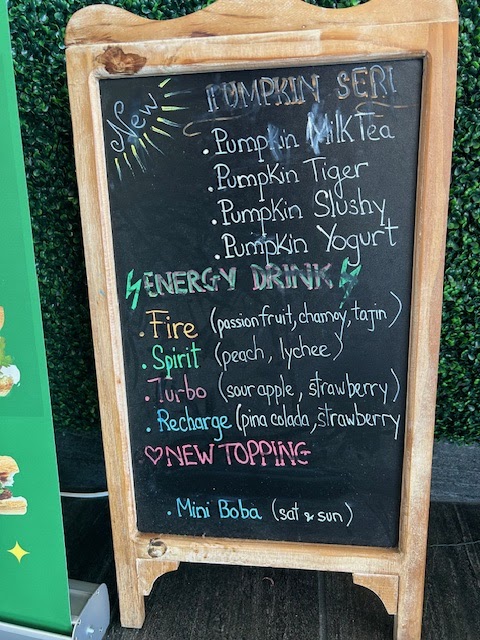 New
PUMPKIN SERI
• Pumpkin Milk Tea
• Pumpkin Tiger
• Pumpkin Slushy
• Pumpkin Yogurt
ENERGY DRINK
• Fire (passionfruit, chamoy, tajin)
• Spirit (peach, lychee)
• Turbo (sour apple, strawberry)
• Recharge (pina colada, strawberry
♡ NEW TOPPING
• Mini Boba (sat & sun)